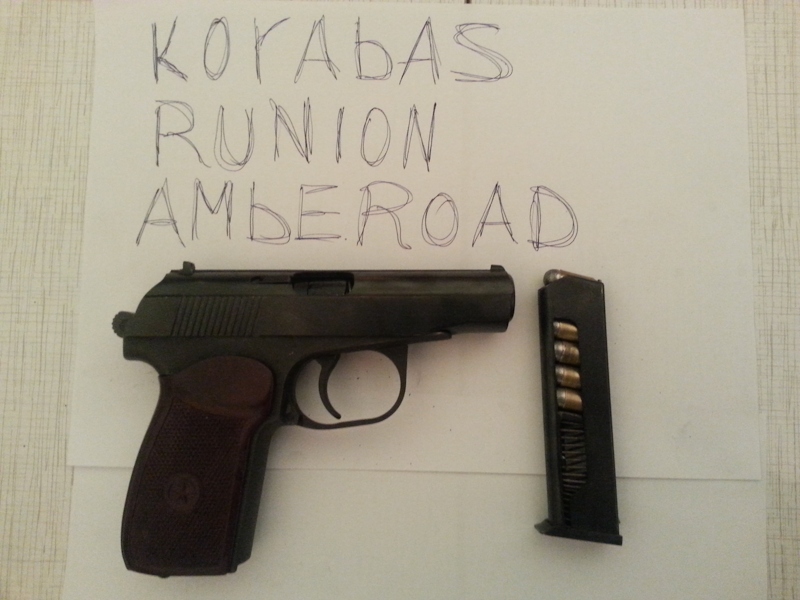 KOrAbAS
RUNION
AMbEROAD